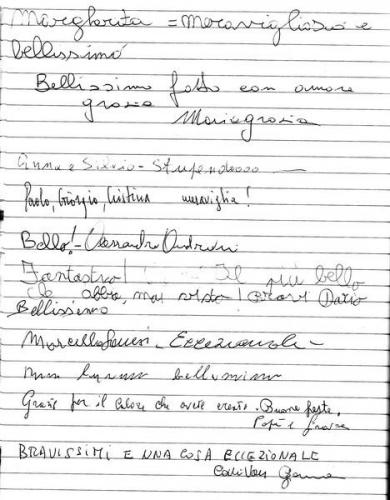 Margherita = meraviglioso e
bellissimo
Bellissimo fatto con amore
grazie
Mariagrazia
Anna e Silvio - Stupendoooo
Paolo, Giorgio, Cristina meraviglia!
Bello! - Alessandro
Fantastico! Il più bello
che abbia mai visto!
Bellissimo
Marcella - Eccezionale -
bellissimo
Grazie per il calore che avete creato. Buone feste,
BRAVISSIMI E UNA COSA ECCEZIONALE